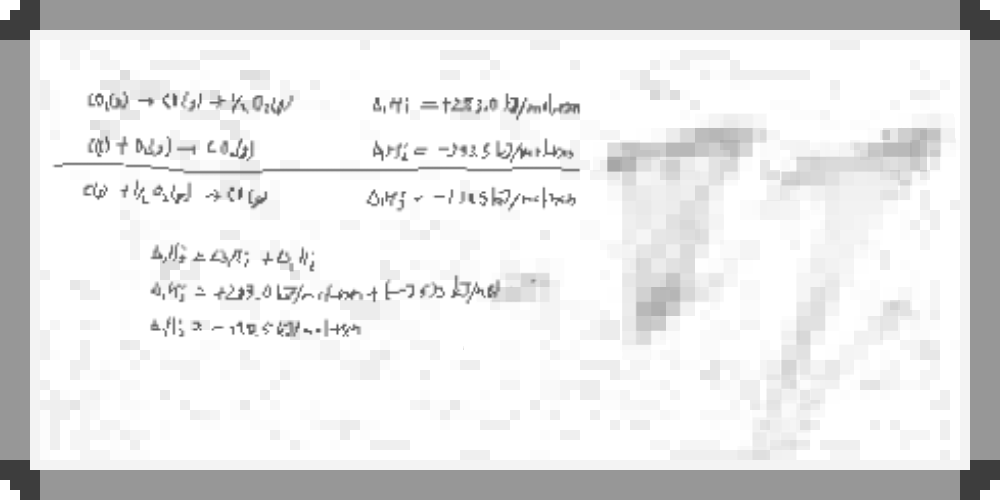 CO₂(g) → CO(g) + ½ O₂(g) ΔᵣH₁ = +283.0 kJ/mol-rxn
C(s) + O₂(g) → CO₂(g) ΔᵣH₂ = -393.5 kJ/mol-rxn
C(s) + ½ O₂(g) → CO(g) ΔᵣH₃ = -110.5 kJ/mol-rxn
ΔᵣH₃ = ΔᵣH₁ + ΔᵣH₂
ΔᵣH₃ = +283.0 kJ/mol-rxn + (-393.5 kJ/mol
ΔᵣH₃ = -110.5 kJ/mol-rxn